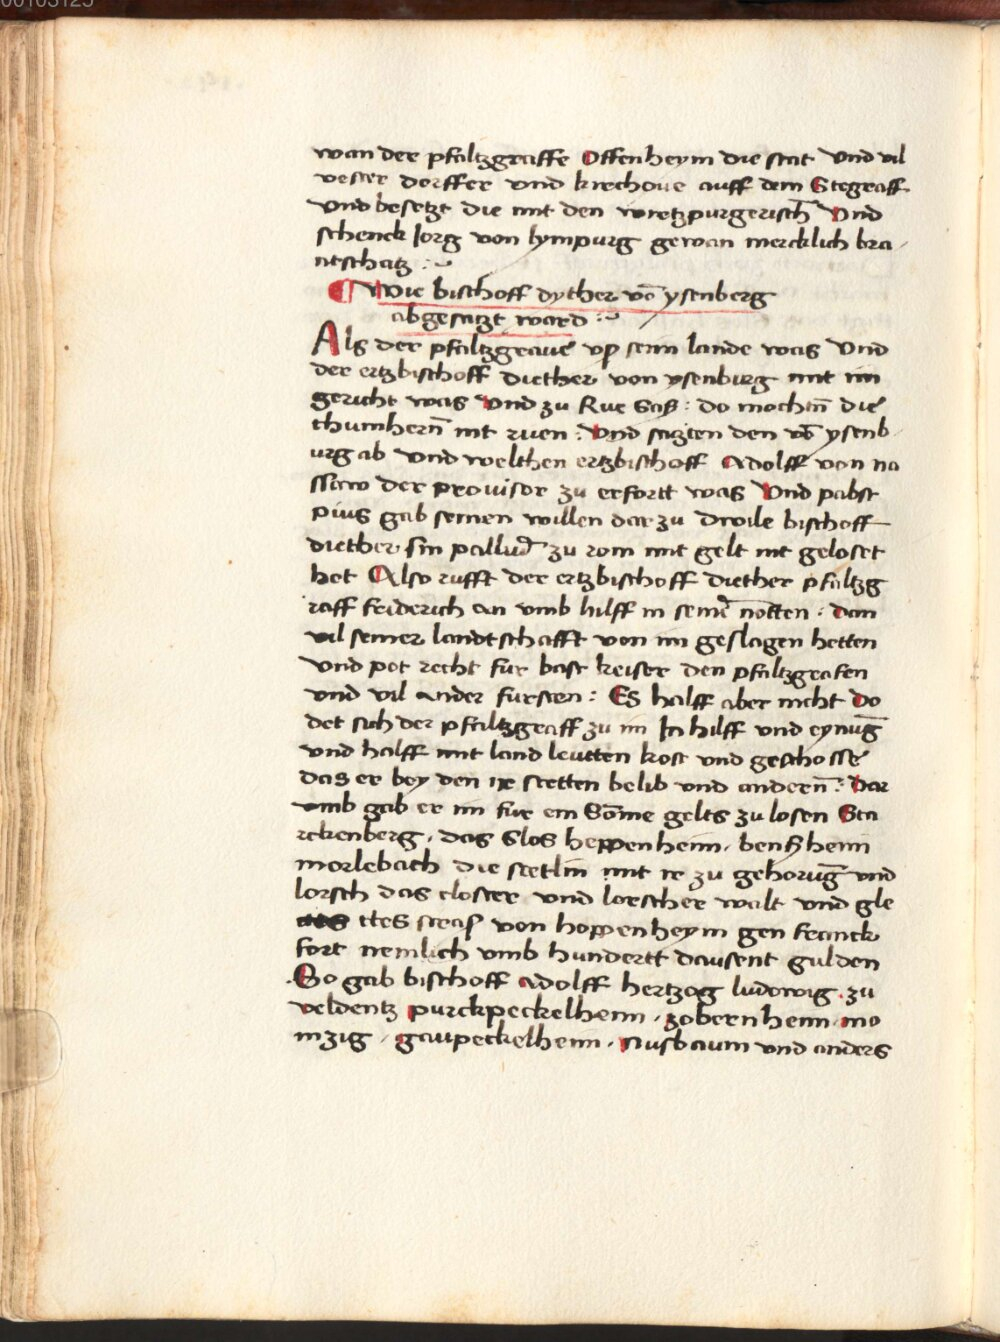 00103125
wan der pfaltzgraffe Offenheym die stat vnd vil
vester dorffer vnd kirchoue auff dem Stegraff
vnd besetzt die mit den wirtzpurgerisch̄ Vnd
schenck Jorg von lympurg gewan mercklich bra
ntschatz :~
¶ Wie bischoff dyther vō ysenberg
abgesatzt ward :~
Als der pfaltzgraue vß seim lande was Vnd
der ertzbischoff diether von ysenburg mit im
gericht was Vnd zu Rue Saß : do mochtn̄ die
thumhern̄ nit ruen : Vnd satzten den vō ysenb
urg ab vnd welthen ertzbischoff Adolff von na
ssaw der prouisor zu erfortt was Vnd pabst
Pius gab seinen willen dar zu Dwile bischoff
diether sin palliū zu rom mit gelt nit geloset
het Also rufft der ertzbischoff diether pfaltzg
raff friderich an vmb hilff in sein̄ notten : dan
vil seiner landtschafft von im geslagen hetten
vnd pot recht fur bast keiser den pfaltzgrafen
vnd vil ander fursten : Es halff aber nicht Do
det sich der pfaltzgraff zu im In hilff vnd eynūg
vnd halff mit land leutten kost vnd geschosse
das er bey den ix stetten belib vnd andern̄ : Dar
vmb gab er im fur ein Sōme gelts zu losen Sta
rckenberg . das Slos heppenheim . benßheim
morlebach die stetlin mit ir zu gehorūg vnd
lorsch das closter vnd lorscher walt vnd gle
ttes stras von heppenheym gen franck
fort nemlich vmb hundertt dausent gulden
So gab bischoff Adolff hertzog ludowig . zu
veldentz purckpeckelheim . zobernheim . mo
mzig . gaupeckelheim . Nusbaum vnd anders